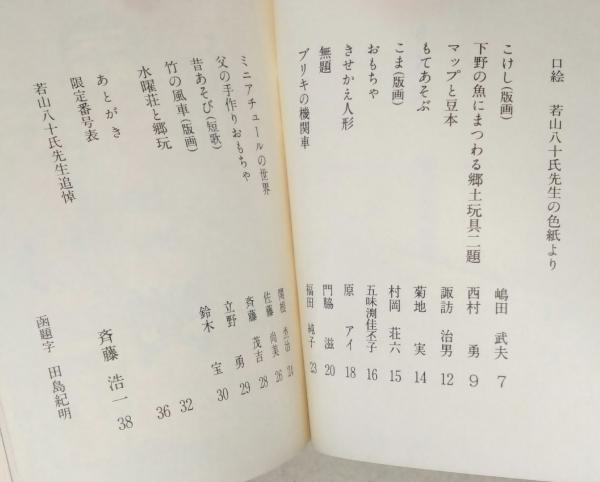 口絵　若山八十氏先生の色紙より
こけし(版画)　嶋田　武夫　7
下野の魚にまつわる郷土玩具二題　西村　勇　9
マップと豆本　諏訪　治男　12
もてあそぶ　菊地　実　14
こま(版画)　村岡　荘六　15
おもちゃ　五味渕佳子　16
きせかえ人形　原　アイ　18
無題　門脇　滋　20
ブリキの機関車　福田　純子　23
ミニアチュールの世界　関根　治　24
父の手作りおもちゃ　佐藤　尚美　26
昔あそび(短歌)　斉藤　茂吉　28
竹の風車(版画)　立野　勇　29
水曜荘と郷玩　鈴木　宝　30
あとがき　32
限定番号表　36
若山八十氏先生追悼　斉藤　浩一　38
函題字　田島紀明